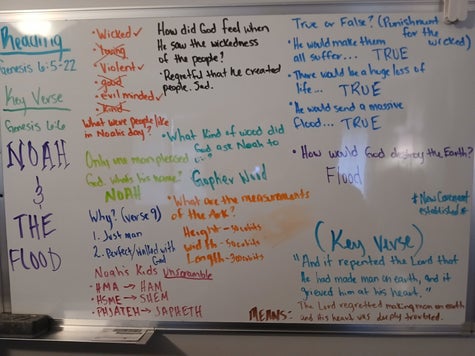 Reading
Genesis 6:5-22
Key Verse
Genesis 6:6
NOAH
&
THE
FLOOD
• Wicked ✓
• Young
• Violent ✓
• good
• evil minded ✓
• Kind
What were people like
in Noah's day?
Only one man pleased
God. what's his name?
NOAH
Why? (verse 9)
1. Just man
2. Perfect/Walked with
God
Noah's Kids Unscramble
• HMA → HAM
• HSME → SHEM
• PHJATEH → JAPHETH
How did God feel when
He saw the wickedness
of the people?
• Regretful that he created
people. Sad.
• What kind of wood did
God ask Noah to
Gopher Wood
• What are the measurements
of the Ark?
Height - 30 cubits
Width - 50 cubits
Length - 300 cubits
True or False? (Punishment
for the
wicked)
• He would make them
all suffer... TRUE
• There would be a huge loss of
life... TRUE
• He would send a massive
Flood... TRUE
• How would God destroy the Earth?
Flood
* New Covenant
established *
(Key Verse)
"And it repented the Lord that
He had made man on earth, and it
grieved him at his heart."
MEANS:- The Lord regretted making man on earth
and His heart was deeply troubled.